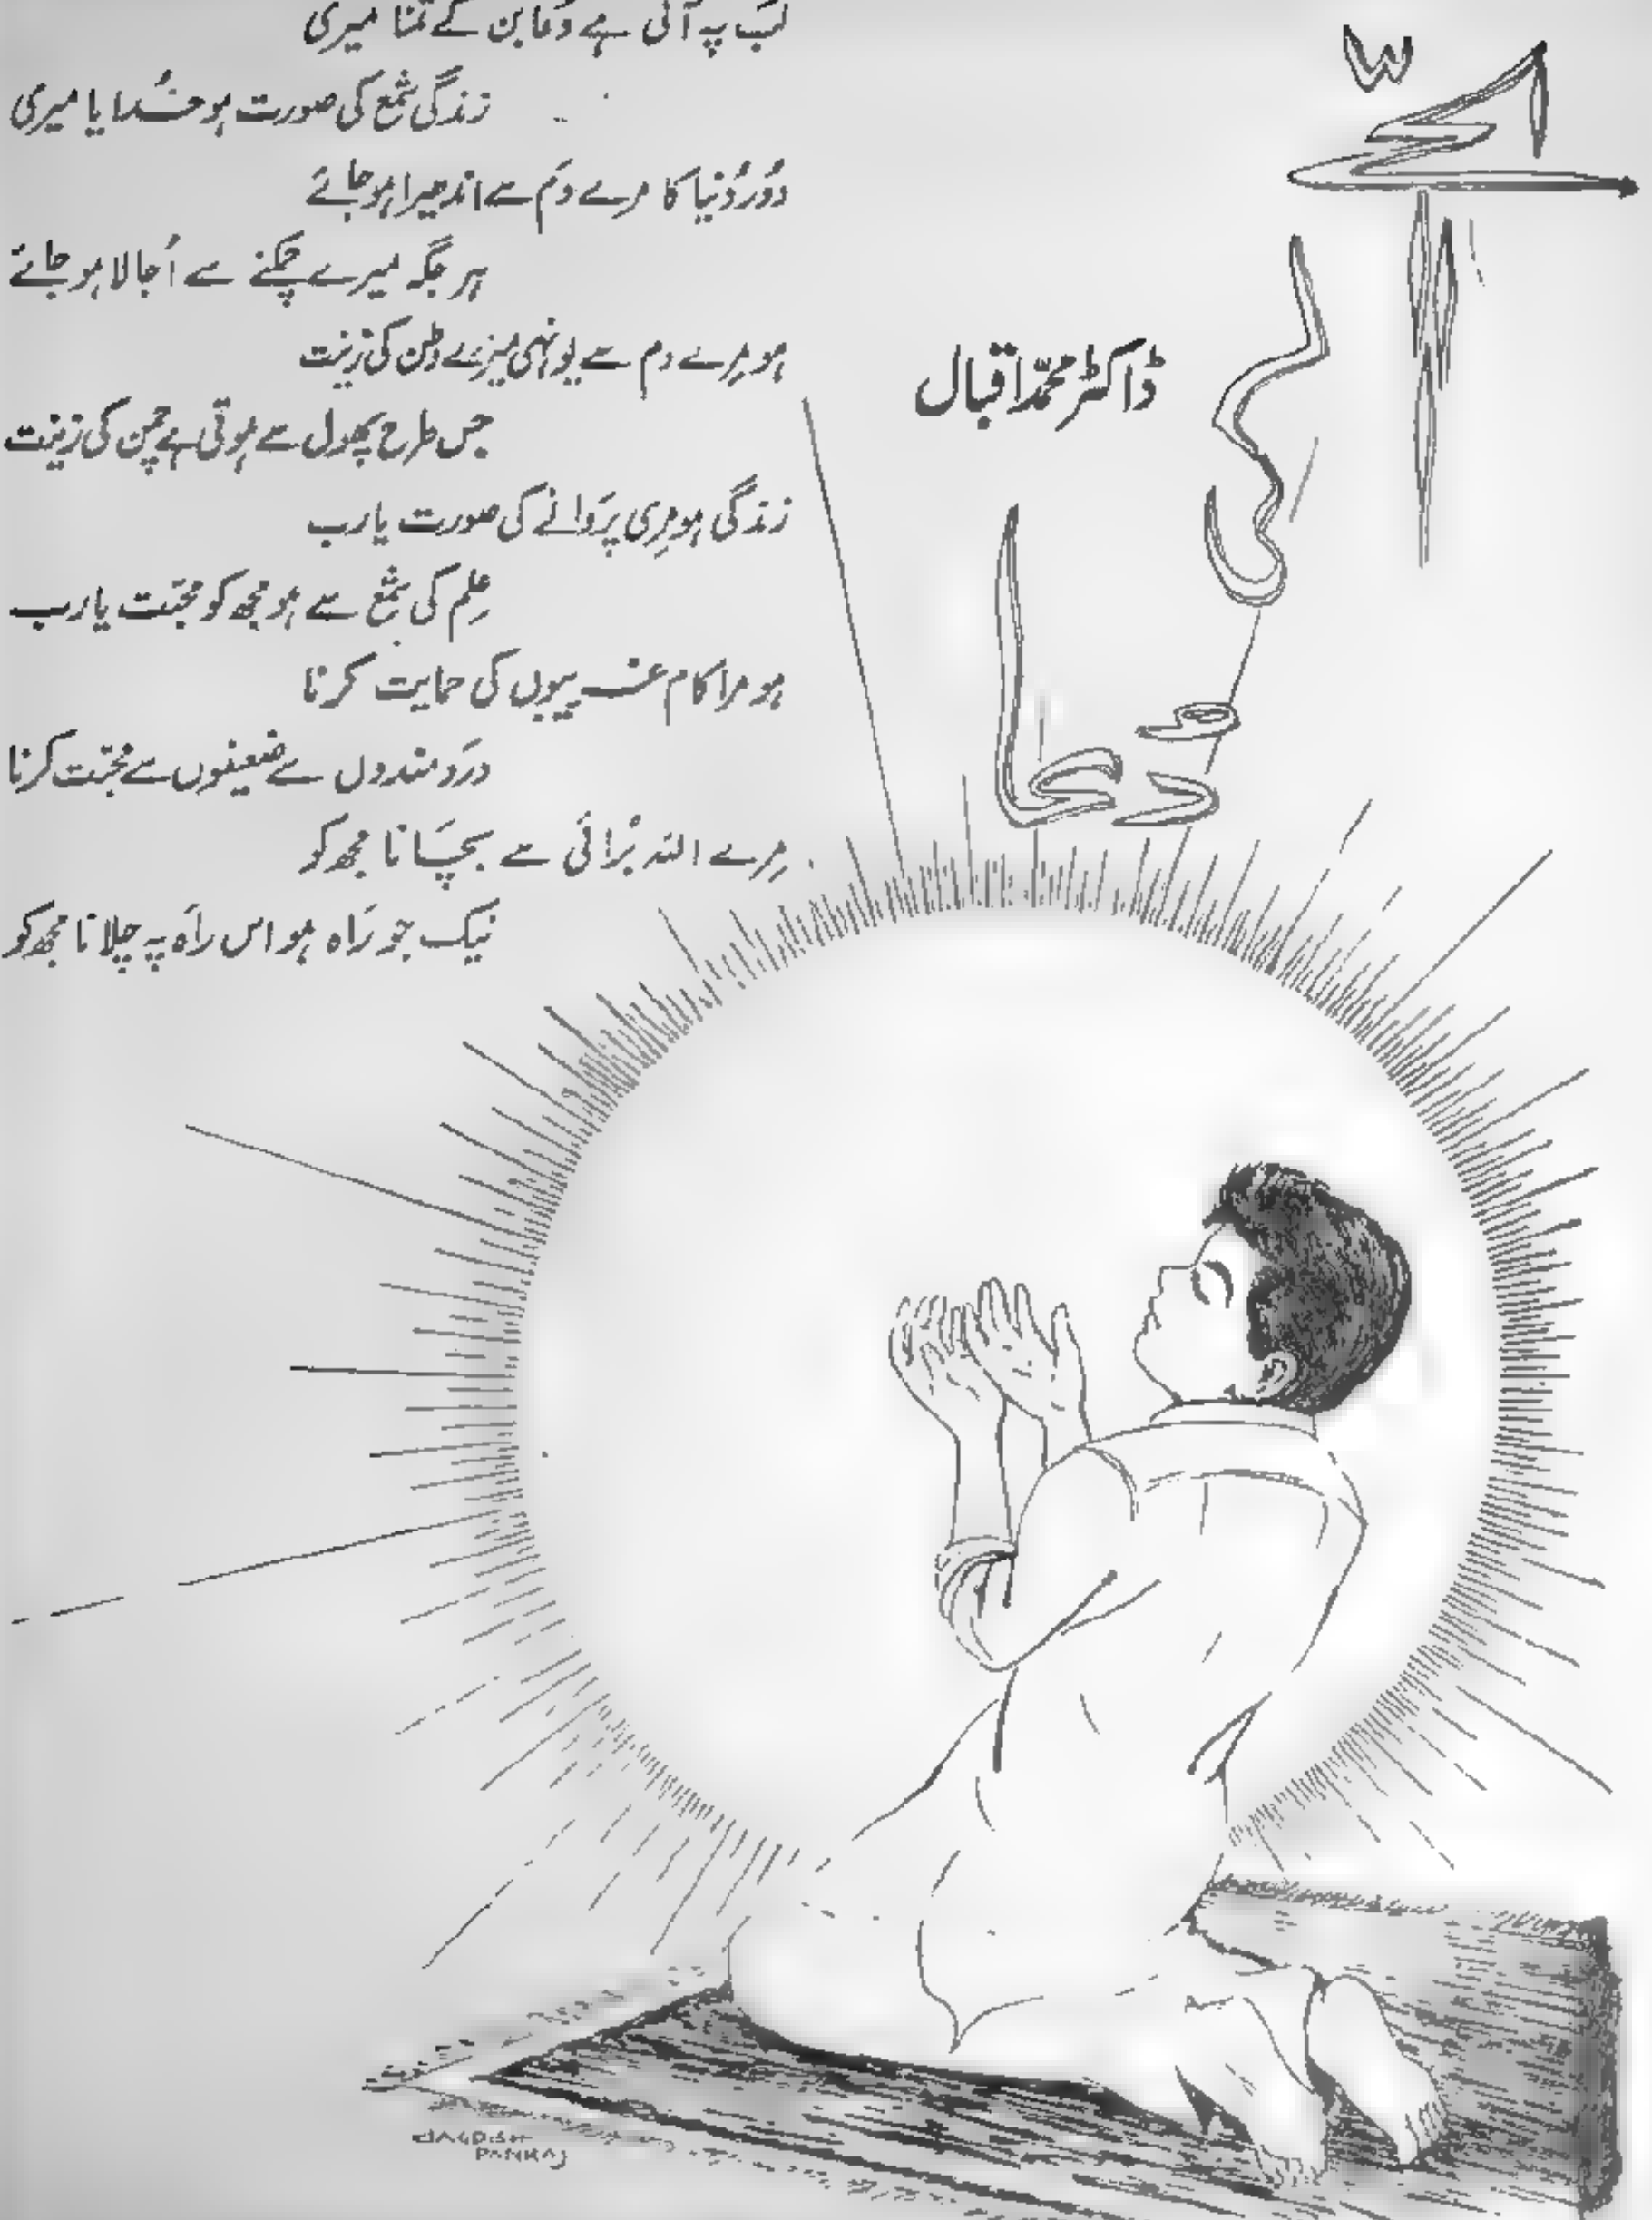 بچے
کی
دعا
ڈاکٹر محمّد اقبال
لب پہ آتی ہے دعا بن کے تمنّا میری
زندگی شمع کی صورت ہو خُدایا میری
دُور دُنیا کا مرے دَم سے اندھیرا ہو جائے
ہر جگہ میرے چمکنے سے اُجالا ہو جائے
ہو مِرے دم سے یونہی میرے وطن کی زینت
جس طرح پھول سے ہوتی ہے چمن کی زینت
زندگی ہو مِری پَروانے کی صورت یارب
عِلم کی شمع سے ہو مجھ کو محبّت یارب
ہو مرا کام غریبوں کی حمایت کرنا
درَد مندوں سے ضعیفوں سے محبّت کرنا
مِرے اللہ بُرائی سے بچَانا مجھ کو
نیک جو رَاہ ہو اس راَہ پہ چلانا مجھ کو
JAGDISH
PANKAJ